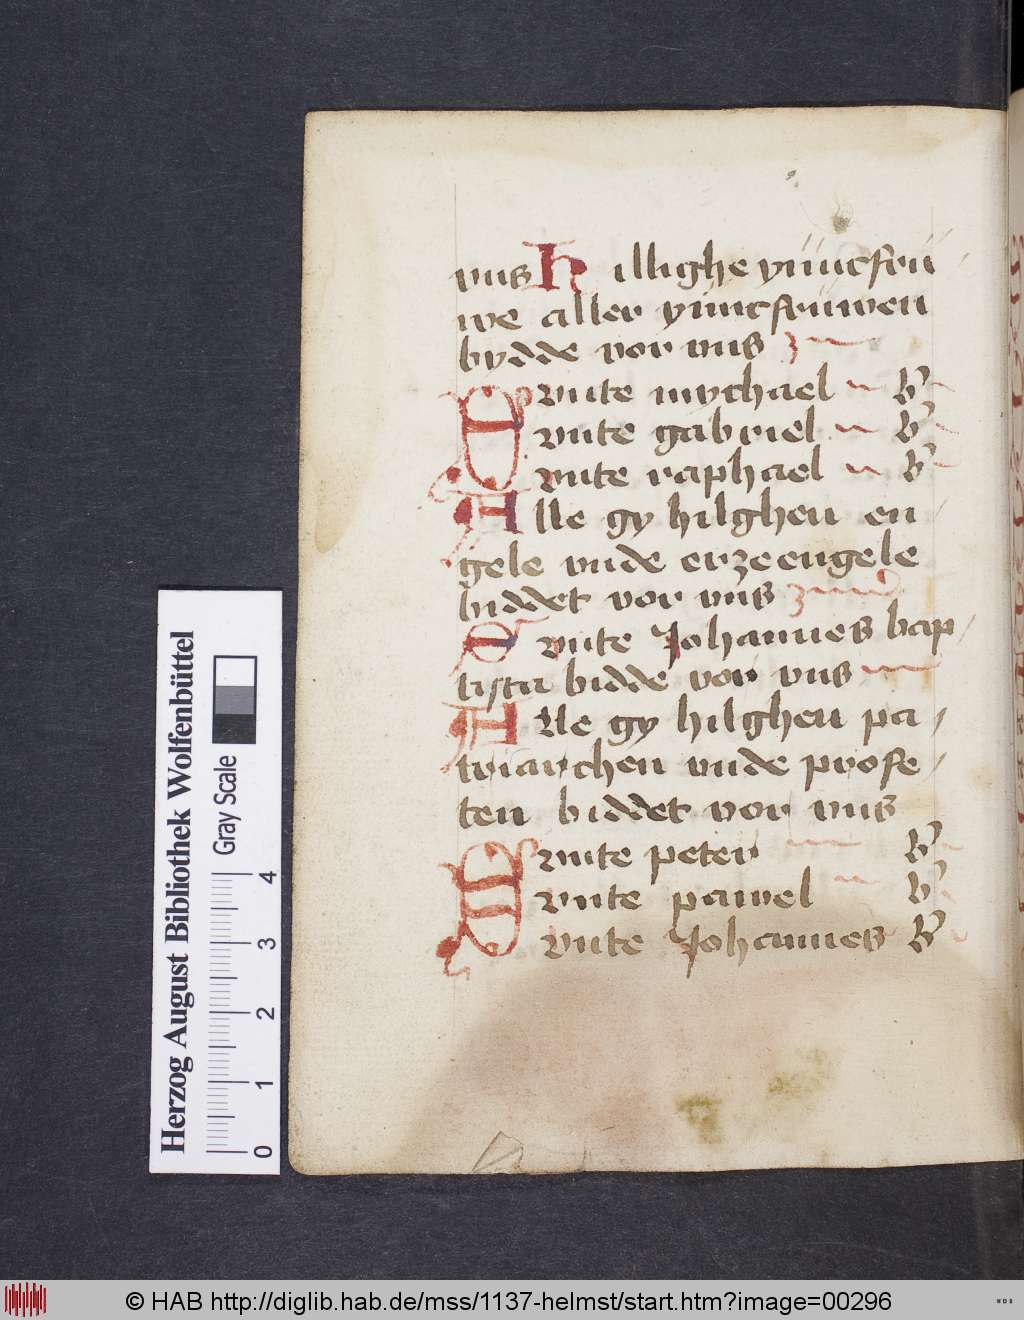 vns Hillighe yuncfru
we aller yuncfruwen
bydde vor vns
Sunte mychael B
Sunte gabriel B
Sunte raphael B
Alle gy hilghen en
gele vnde erzeengele
biddet vor vns
Sunte Johannes bap
tista bidde vor vns
Alle gy hilghen pa
triarchen vnde profe
ten biddet vor vns
Sunte peter B
Sunte pawel B
Sunte Johannes B
Herzog August Bibliothek Wolfenbüttel
Gray Scale
0 1 2 3 4
© HAB http://diglib.hab.de/mss/1137-helmst/start.htm?image=00296